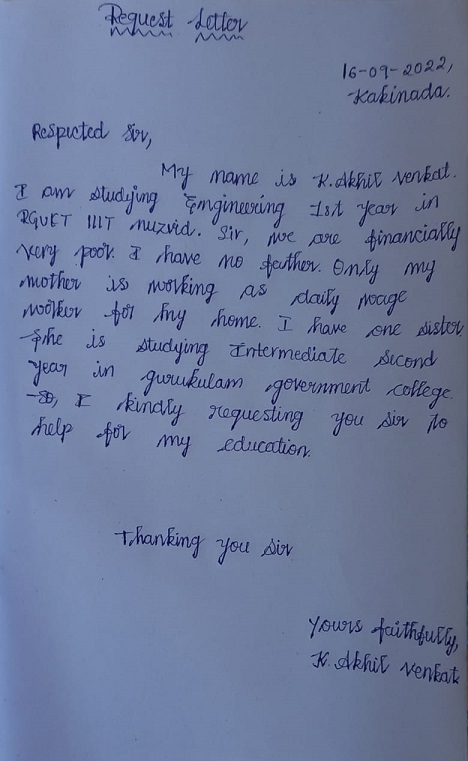 Request Letter
16-09-2022,
Kakinada.
Respected Sir,
My name is K.Akhil Venkat.
I am studying Engineering 1st year in
RGUKT IIIT nuzvid. Sir, we are financially
very poor. I have no father. Only my
mother is working as daily wage
worker for my home. I have one sister
She is studying Intermediate second
year in gurukulam government college.
So, I kindly requesting you sir to
help for my education.
Thanking you sir
Yours faithfully,
K. Akhil Venkat